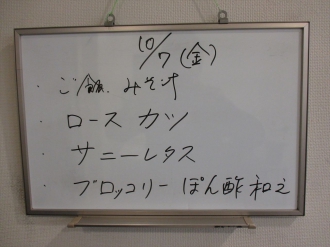 10/7(金)
・ご飯 みそ汁
・ロースカツ
・サニーレタス
・ブロッコリーぽん酢和え